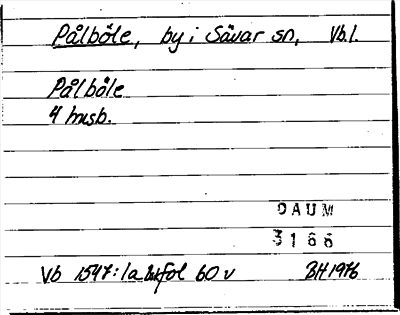 Pålböle, by i Sävar sn, Vb.l.
Pålböle
4 husb.
DAUM
3166
Vb 1547:1a fol 60 v BH 1976